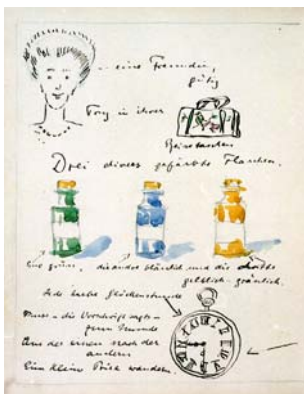 eine Freundin,
gütig
Trug in ihrer
Reisetaschen
Drei divers gefärbte Flaschen.
Eine grüne, die andre bläulich und die dritte
gelblich-gräulich.
Jede halbe Glockenstunde
Muss – die Vorschrift
Aus der einen nach der
andern
Eine kleine wandern.